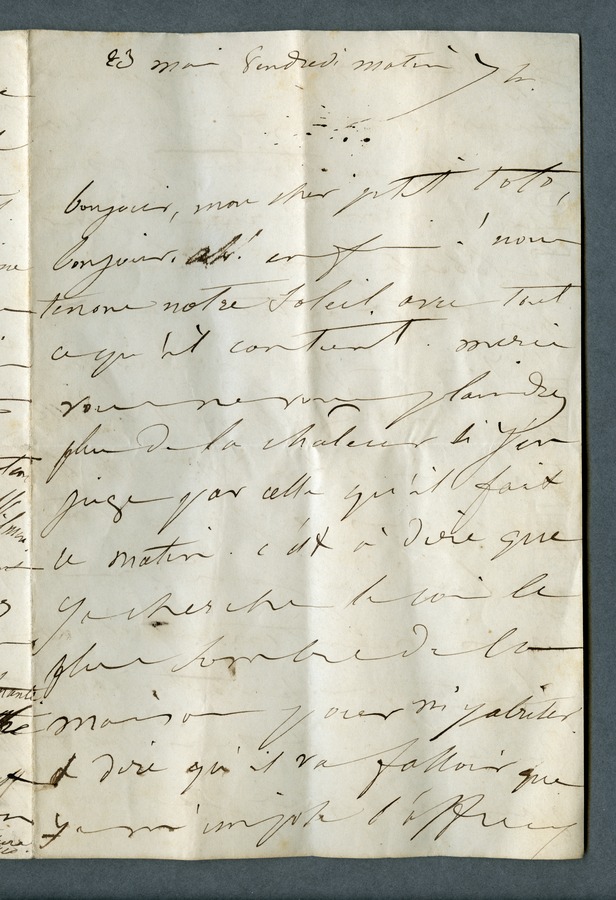 23 mai Vendredi matin 7 h.
bonjour, mon cher petit toto,
bonjour. ah! enfin ! nous
tenons notre Soleil avec tout
ce qu'il contient.
vous ne vous plaindrez
plus de la chaleur si j'en
juge par celle qu'il fait
ce matin. c'est à dire que
je cherche le coin le
plus sombre de la
maison pour m'y abriter.
et dire qu'il va falloir que
je m'